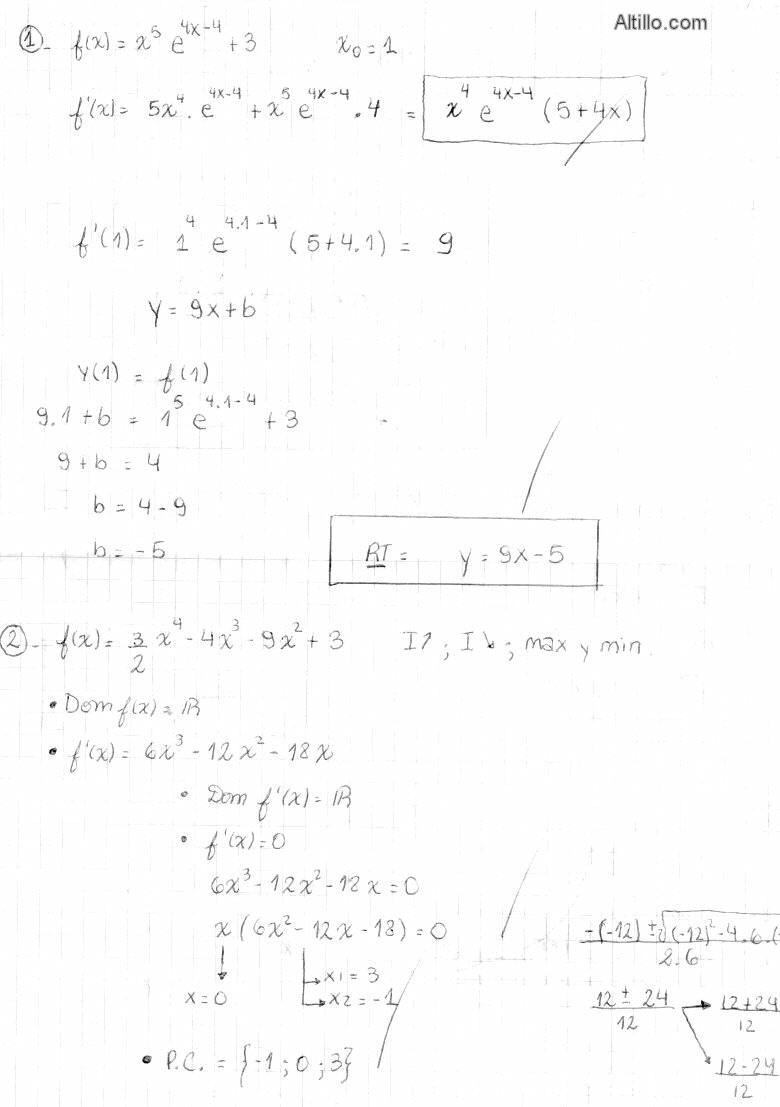 Altillo.com
① - f(x) = x⁵ e^(4x-4) + 3 x₀ = 1
f'(x) = 5x⁴ . e^(4x-4) + x⁵ e^(4x-4) . 4 = x⁴ e^(4x-4) (5+4x)
f'(1) = 1⁴ e^(4.1-4) (5+4.1) = 9
y = 9x+b
y(1) = f(1)
9.1+b = 1⁵ e^(4.1-4) + 3
9+b = 4
b = 4-9
b = -5
RT = y = 9x-5
② - f(x) = 3/2 x⁴ - 4x³ - 9x² + 3 I↗ ; I↘ ; max y min.
• Dom f(x) = ℝ
• f'(x) = 6x³ - 12x² - 18x
• Dom f'(x) = ℝ
• f'(x) = 0
6x³ - 12x² - 12x = 0
x (6x² - 12x - 18) = 0 -(-12) ± √(-12)² - 4.6.(- / 2.6
x = 0 → x1 = 3 → x2 = -1
12 ± 24 / 12 → 12+24 / 12
→ 12-24 / 12
• P.C. = {-1 ; 0 ; 3}